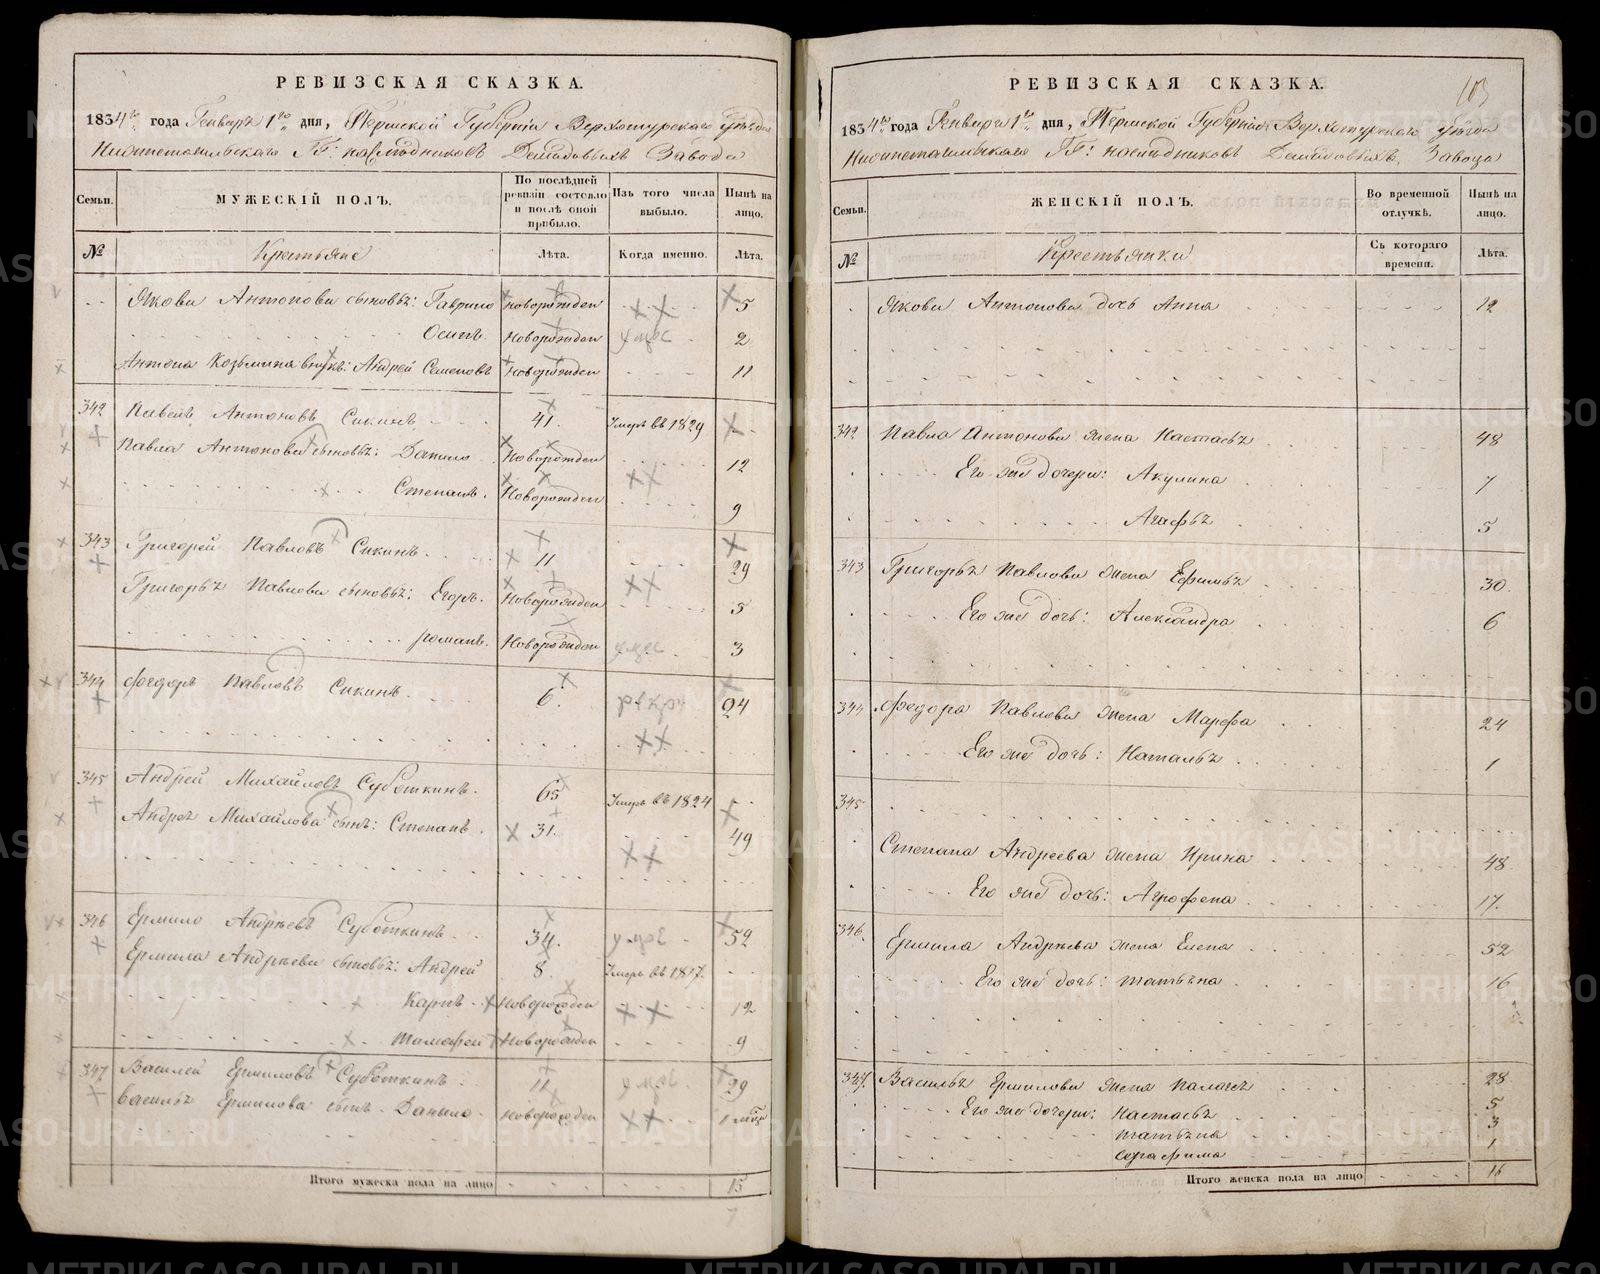 РЕВИЗСКАЯ СКАЗКА.
1834го года Генваря 1го дня, Пермской Губерніи Верхотурскаго уѣзда
Нижнетагильскаго ГГ: наслѣдниковъ Демидовыхъ Завода
Семьи.
МУЖЕСКІЙ ПОЛЪ.
По послѣдней ревизіи состояло и послѣ оной прибыло.
Изъ того числа выбыло.
Нынѣ на лицо.
№
Крестьяне
Лѣта.
Когда именно.
Лѣта.
Якова Антонова сыновья: Гаврило новорожден 5
Осипъ. Новорожден 2
Антона Козьмина внукъ: Андрей Семеновъ Новорожден 11
342 Павелъ Антоновъ Сикинъ 41. Умеръ въ 1829
Павла Антонова сыновья: Данило Новорожден 12
Степанъ. Новорожден 9
343 Григорей Павловъ Сикинъ. 11 29
Григорья Павлова сыновья: Егоръ. Новорожден 5
Романъ. Новорожден 3
344 Федоръ Павловъ Сикинъ. 6. 24
345 Андрей Михайловъ Суботкинъ. 65 Умеръ въ 1824
Андрея Михайлова сынъ: Степанъ. 31. 49
346 Ермило Андреевъ Суботкинъ. 34. 52
Ермила Андреева сыновья: Андрей 8. Умеръ въ 1817.
Карпъ. Новорожден 12
Тимофей Новорожден 9
347 Василей Ермиловъ Суботкинъ. 11 29
Василья Ермилова сынъ. Данило. новорожден
Итого мужеска пола на лицо 15
РЕВИЗСКАЯ СКАЗКА.
103
1834го года Генваря 1го дня, Пермской Губерніи Верхотурскаго уѣзда
Нижнетагильскаго ГГ: наслѣдниковъ Демидовыхъ, Завода
Семьи.
ЖЕНСКІЙ ПОЛЪ.
Во временной отлучкѣ.
Нынѣ на лицо.
№
Крестьянки
Съ котораго времени.
Лѣта.
Якова Антонова дочь Анна 12
342 Павла Антонова жена Настасья 48
Его же дочери: Акулина 7
Агафья 5
343 Григорья Павлова жена Ефимья 30.
Его же дочь: Александра 6
344 Федора Павлова жена Марфа 24
Его же дочь: Наталья 1
345
Степана Андреева жена Ирина 48.
Его же дочь: Агрофена 17.
346. Ермила Андреева жена Елена 52
Его же дочь: татьяна 16
347. Василья Ермилова жена Палагея 28
Его же дочери: Настасья 5
татьяна 3
серафима 1
Итого женска пола на лицо 16
METRIKI.GASO-URAL.RU